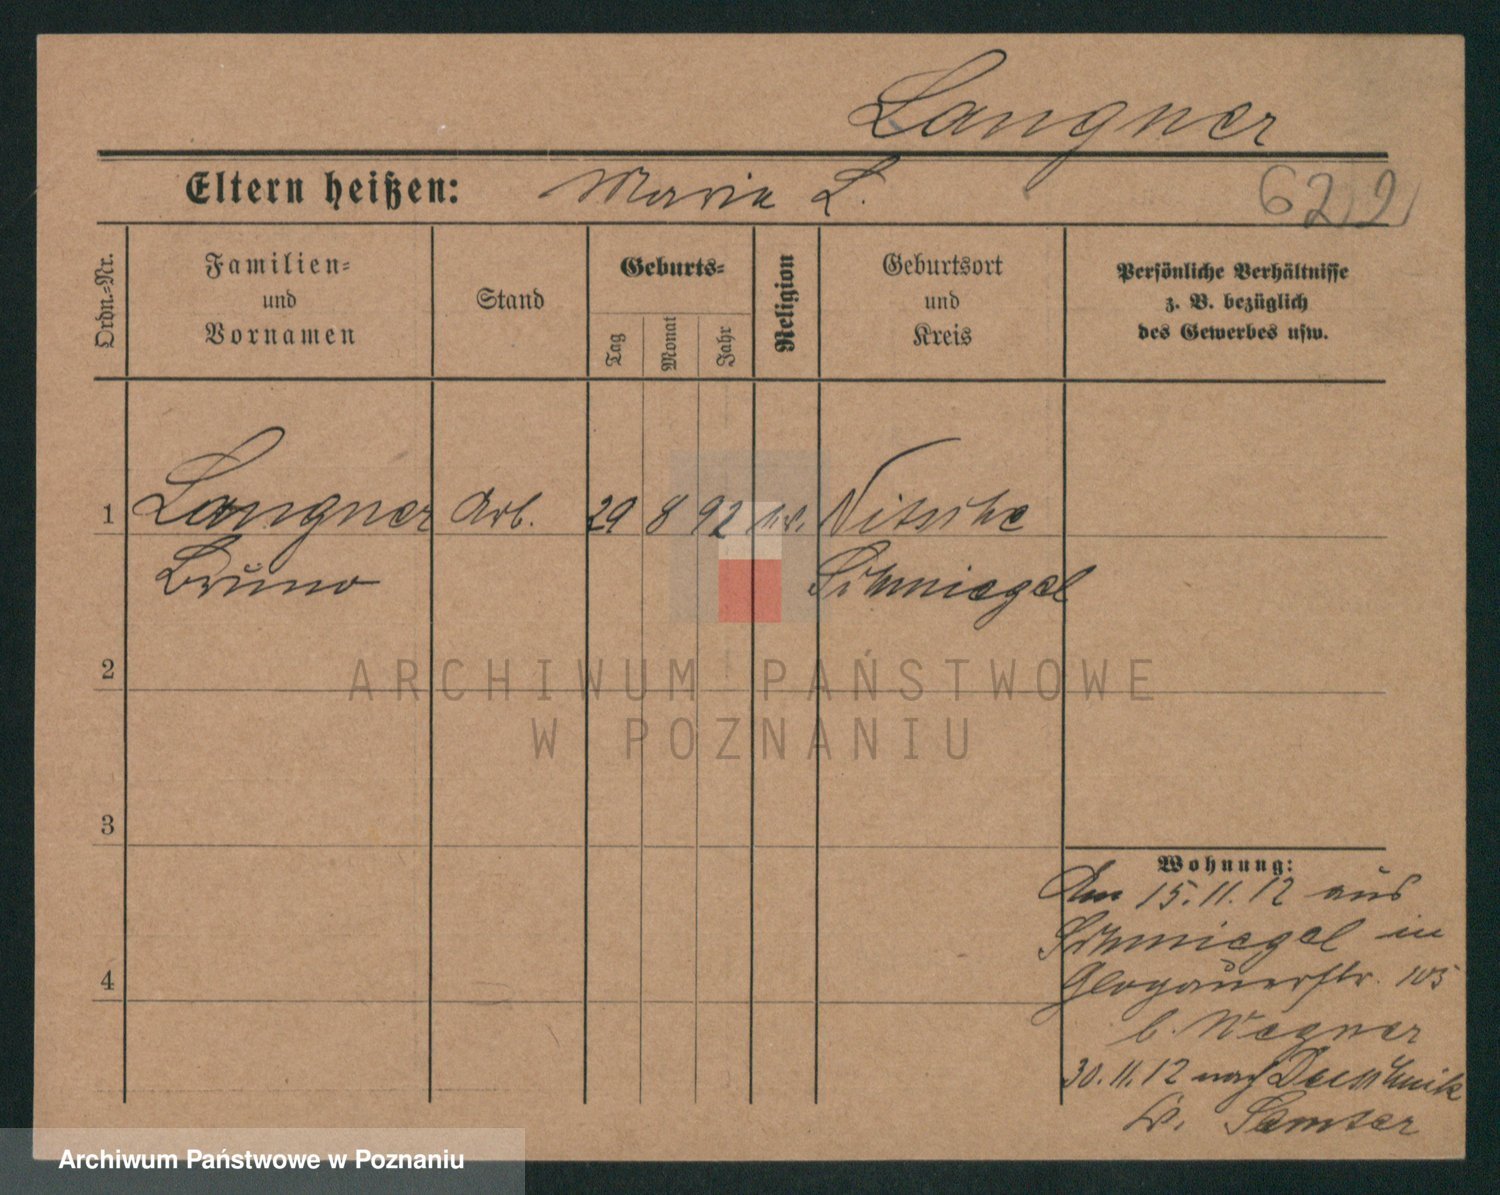 Langner
Eltern heißen: Maria L.
622
Ordn.-Nr.
Familien-
und
Vornamen
Stand
Geburts-
Tag
Monat
Jahr
Religion
Geburtsort
und
Kreis
Persönliche Verhältnisse
z. B. bezüglich
des Gewerbes usw.
1 Langner Arb. 29 8 92 ev. Nitsche
Bruno Schmiegel
2
3
4
Wohnung:
Am 15.11.12 aus
Schmiegel in
Glogauerstr. 105
b. Wegner
30.11.12 nach Duschnik
Kr. Samter
ARCHIWUM PAŃSTWOWE
W POZNANIU
Archiwum Państwowe w Poznaniu